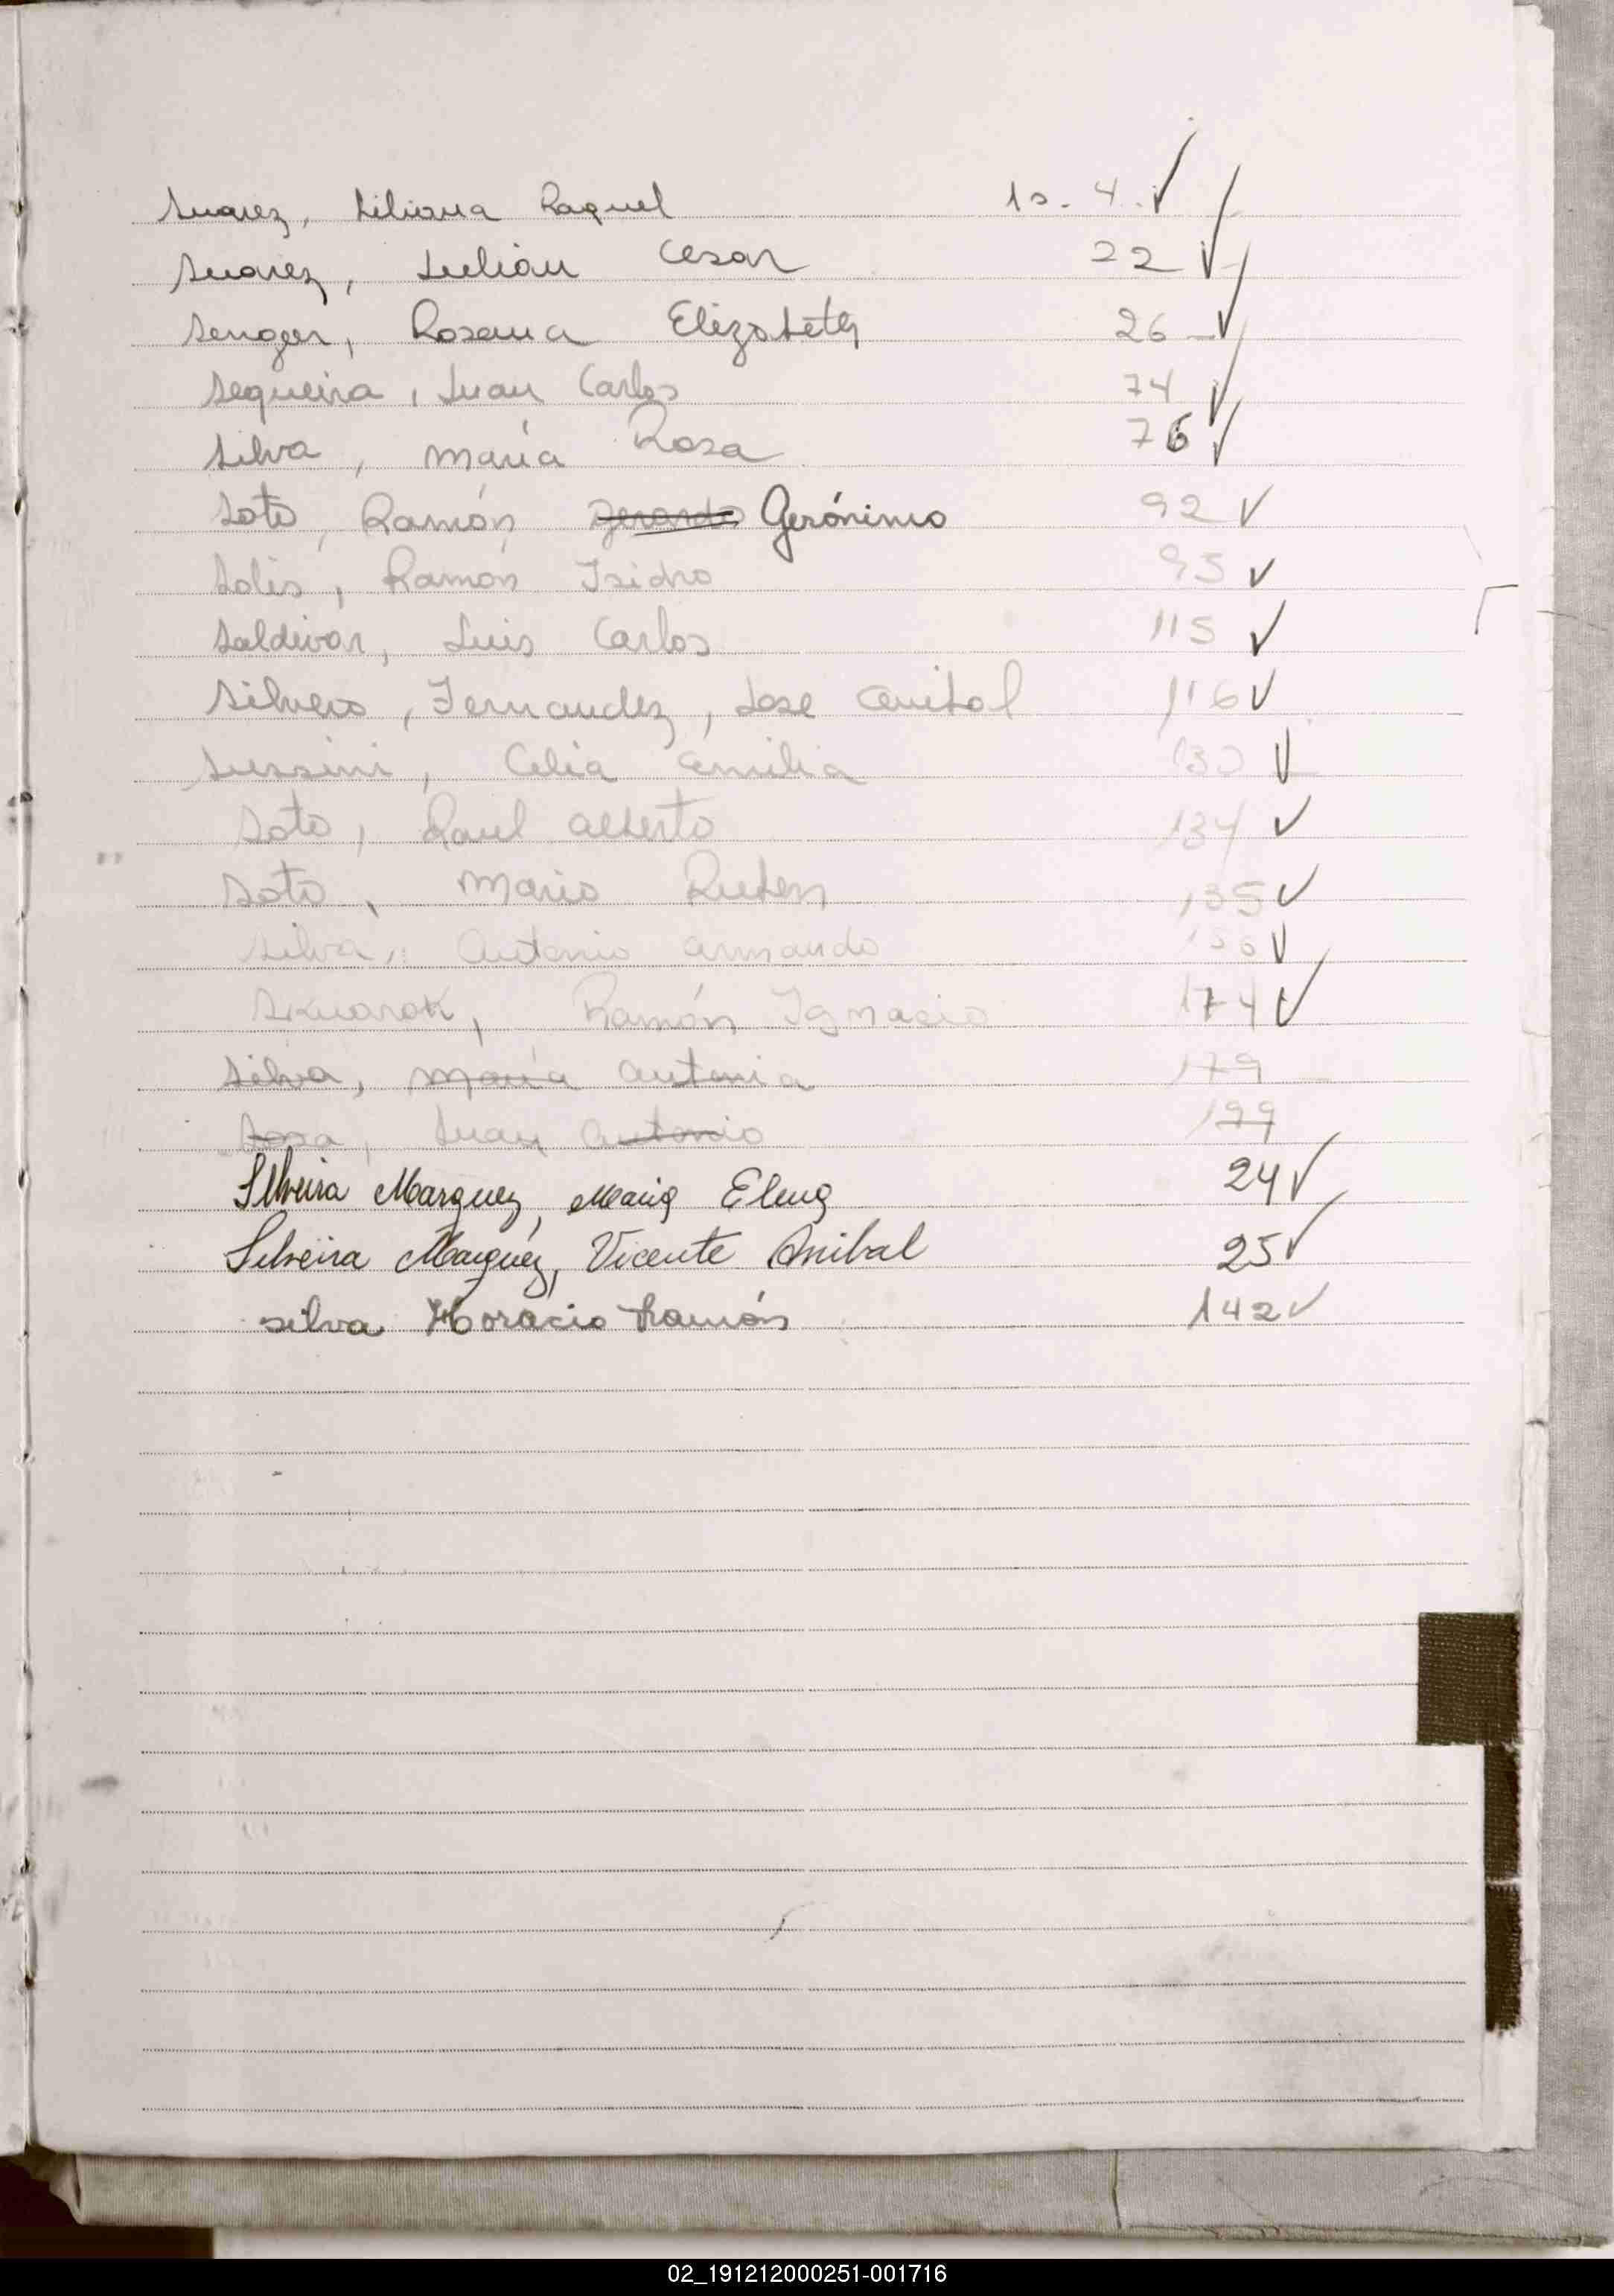 Suarez, Liliana Raquel 10. 4. ✓
Suarez, Julián Cesar 22 ✓
Senger, Rosana Elizabeth 26 ✓
Sequeira, Juan Carlos 74 ✓
Silva, María Rosa 76 ✓
Soto, Ramón Gerardo Gerónimo 92 ✓
Solis, Ramón Isidro 95 ✓
Saldivar, Luis Carlos 115 ✓
Silvero, Fernandez, Jose 116 ✓
Sussini, Celia Emilia 130 ✓
Soto, Raul Alberto 134 ✓
Soto, Mario Ruben 135 ✓
Silva, Antonio Armando ✓
Skuarok, Ramón Ignacio 174 ✓
Silva, María Antonia 179
Sosa, Juan Antonio 199
Silveira Marquez, Maria Elena 24 ✓
Silveira Marquez, Vicente Anibal 25 ✓
silva Horacio Ramón 142 ✓
02_191212000251-001716